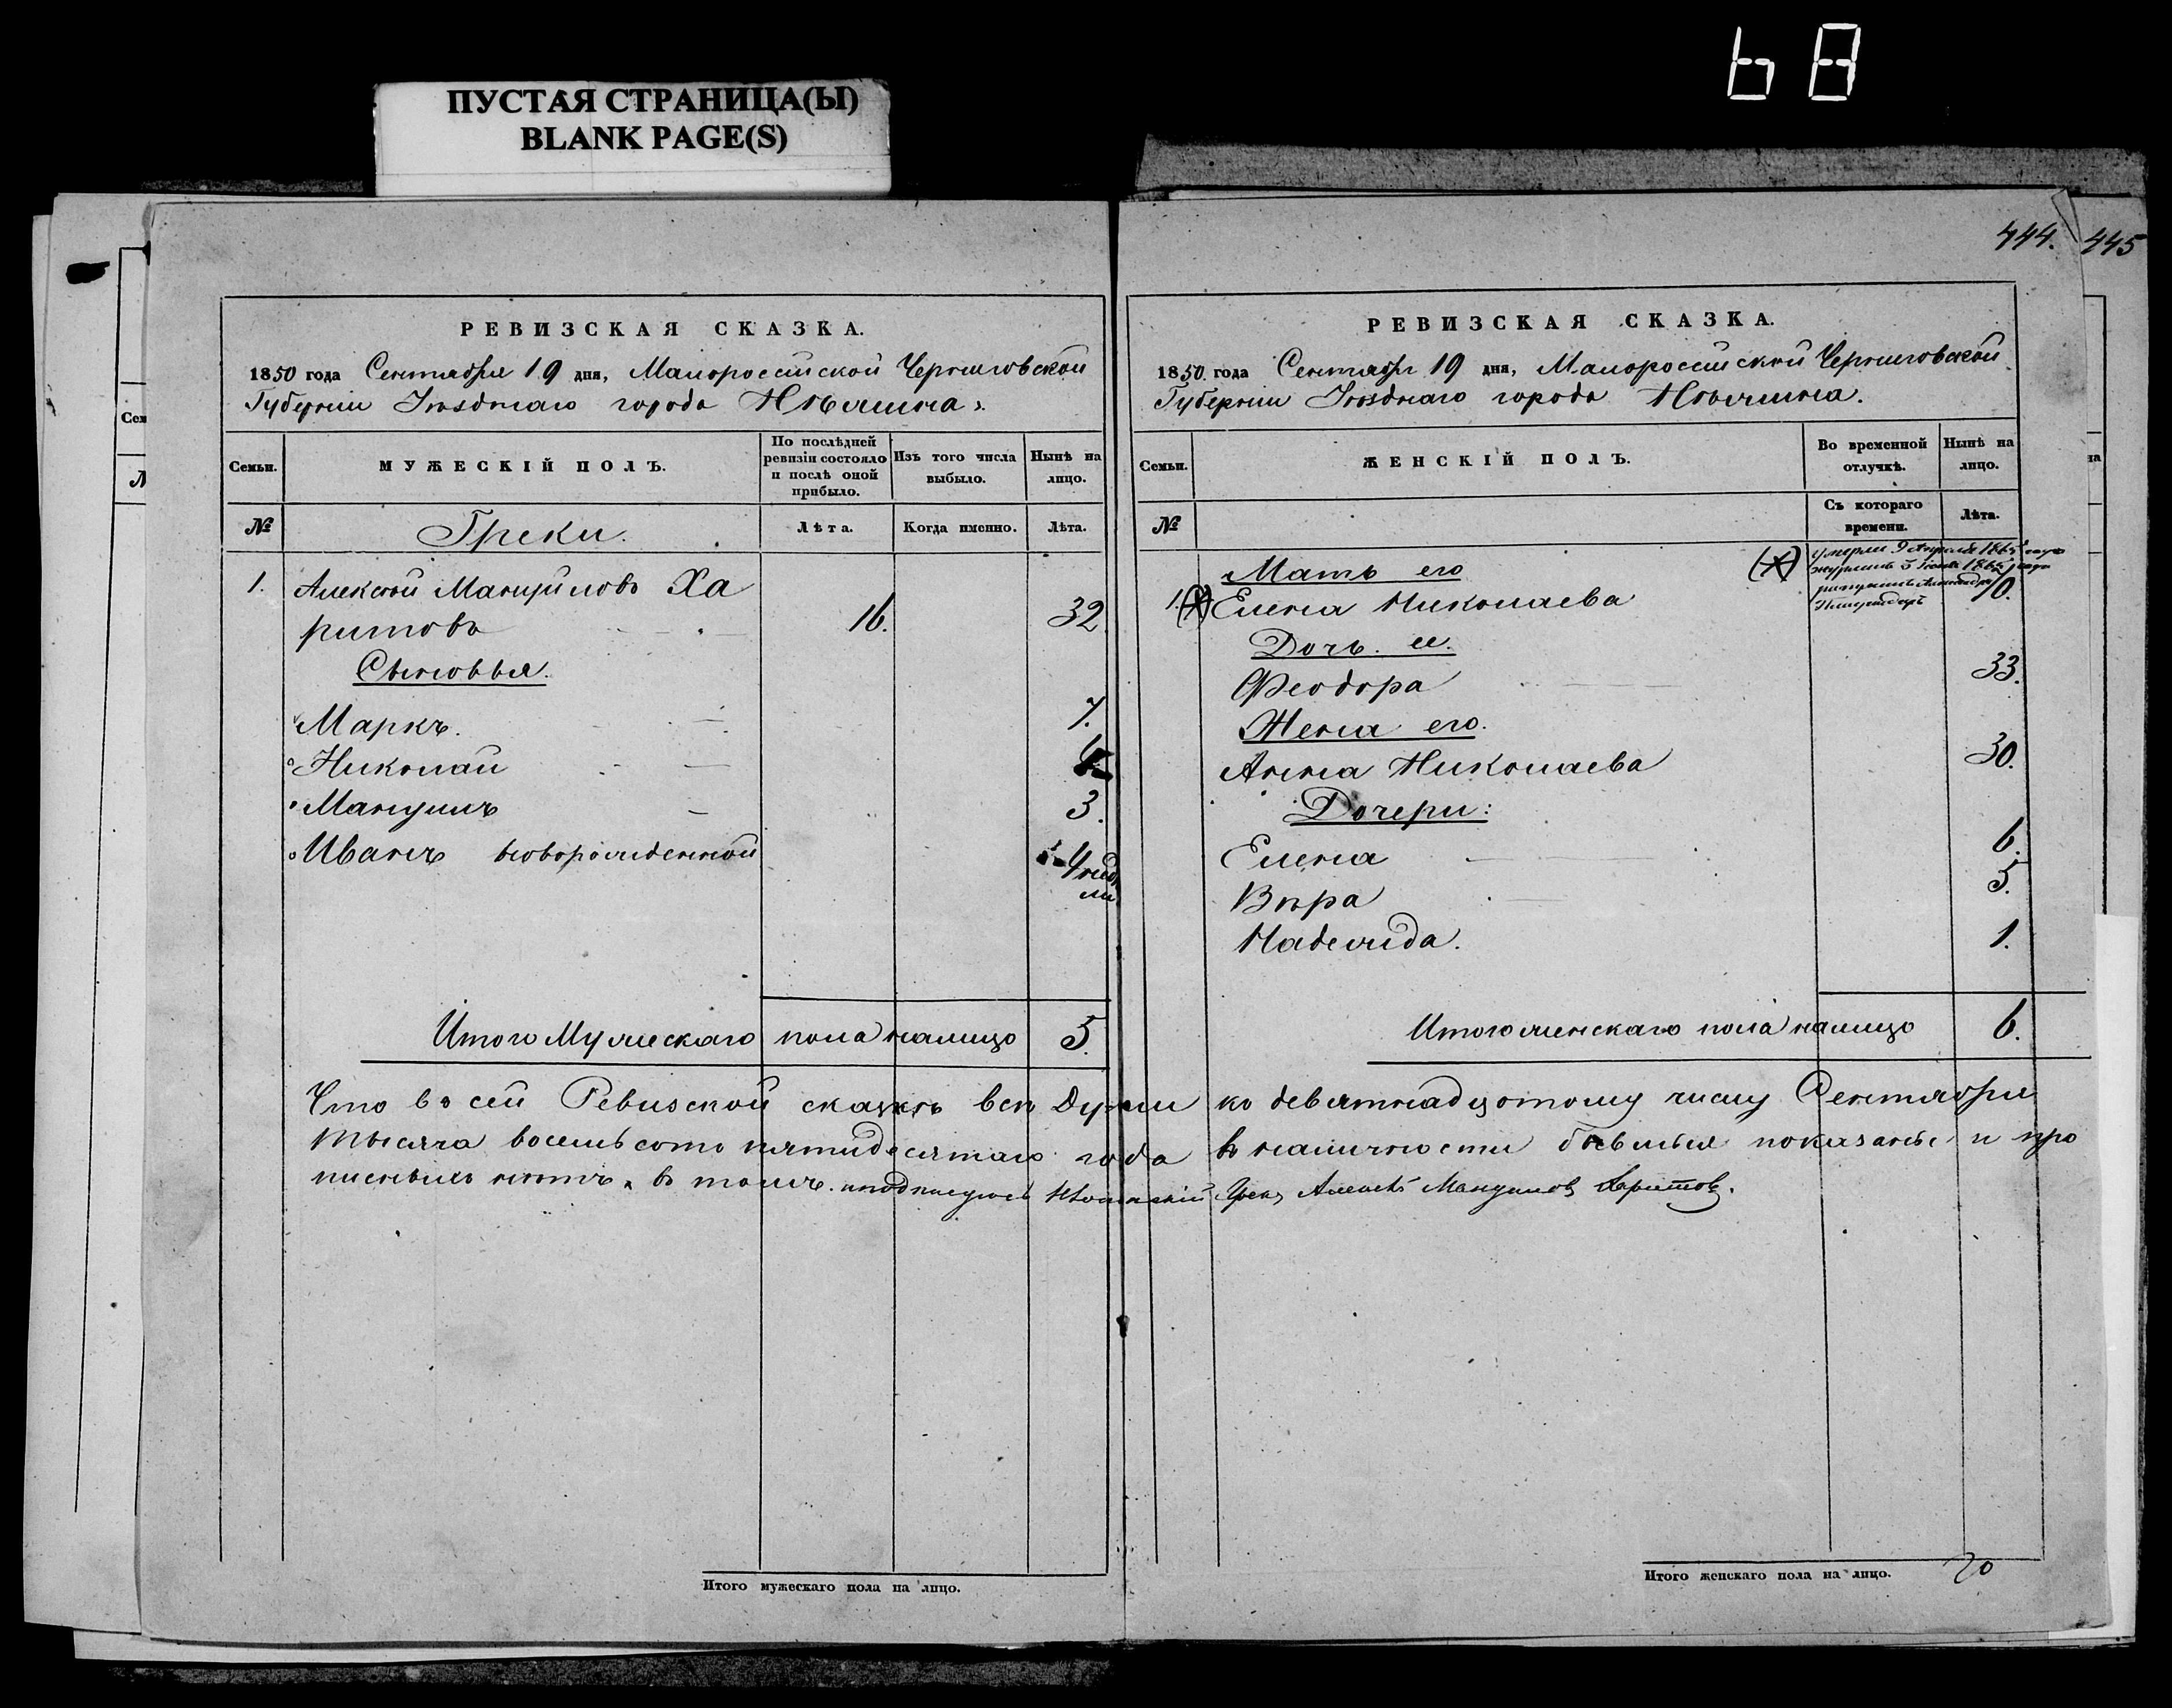 68
ПУСТАЯ СТРАНИЦА(Ы)
BLANK PAGE(S)
444. 445
РЕВИЗСКАЯ СКАЗКА.
1850 года Сентября 19 дня, Малороссійской Черниговской
Губерніи Уѣзднаго города Нѣжина.
Семьи.
МУЖЕСКІЙ ПОЛЪ.
По послѣдней ревизіи состояло и послѣ оной прибыло.
Изъ того числа выбыло.
Нынѣ на лицо.
№
Греки.
Лѣта.
Когда именно.
Лѣта.
1. Алексѣй Мануйловъ Ха
ритовъ 16. 32.
Сыновья.
Маркъ. 7.
Николай
Мануилъ 3.
Иванъ новорожденной 4 недѣ
ли
Итого Мужескаго пола налицо 5.
РЕВИЗСКАЯ СКАЗКА.
1850 года Сентября 19 дня, Малороссійской Черниговской
Губерніи Уѣзднаго города Нѣжина.
Семьи.
ЖЕНСКІЙ ПОЛЪ.
Во временной отлучкѣ.
Нынѣ на лицо.
№
Съ котораго времени.
Лѣта.
Мать его
умерли 9 Апрѣля 1865 года
1865 года
1. Елена Николаева 70.
Дочь ее.
Феодора 33.
Жена его.
Анна Николаева 30.
Дочери:
Елена 6.
Вѣра 5.
Надежда. 1.
Итого женскаго пола налицо 6.
Что въ сей Ревизской сказкѣ всѣ Души ко девятнадцотому числу Сентября
тысяча восемьсотъ пятидесятаго года въ наличности бывшія показаны и про
писныхъ нѣтъ, въ томъ и подписуюсь Нѣжинскій Грекъ Алексѣй Мануиловъ Харитовъ.
Итого мужескаго пола на лицо.
Итого женскаго пола на лицо.
20